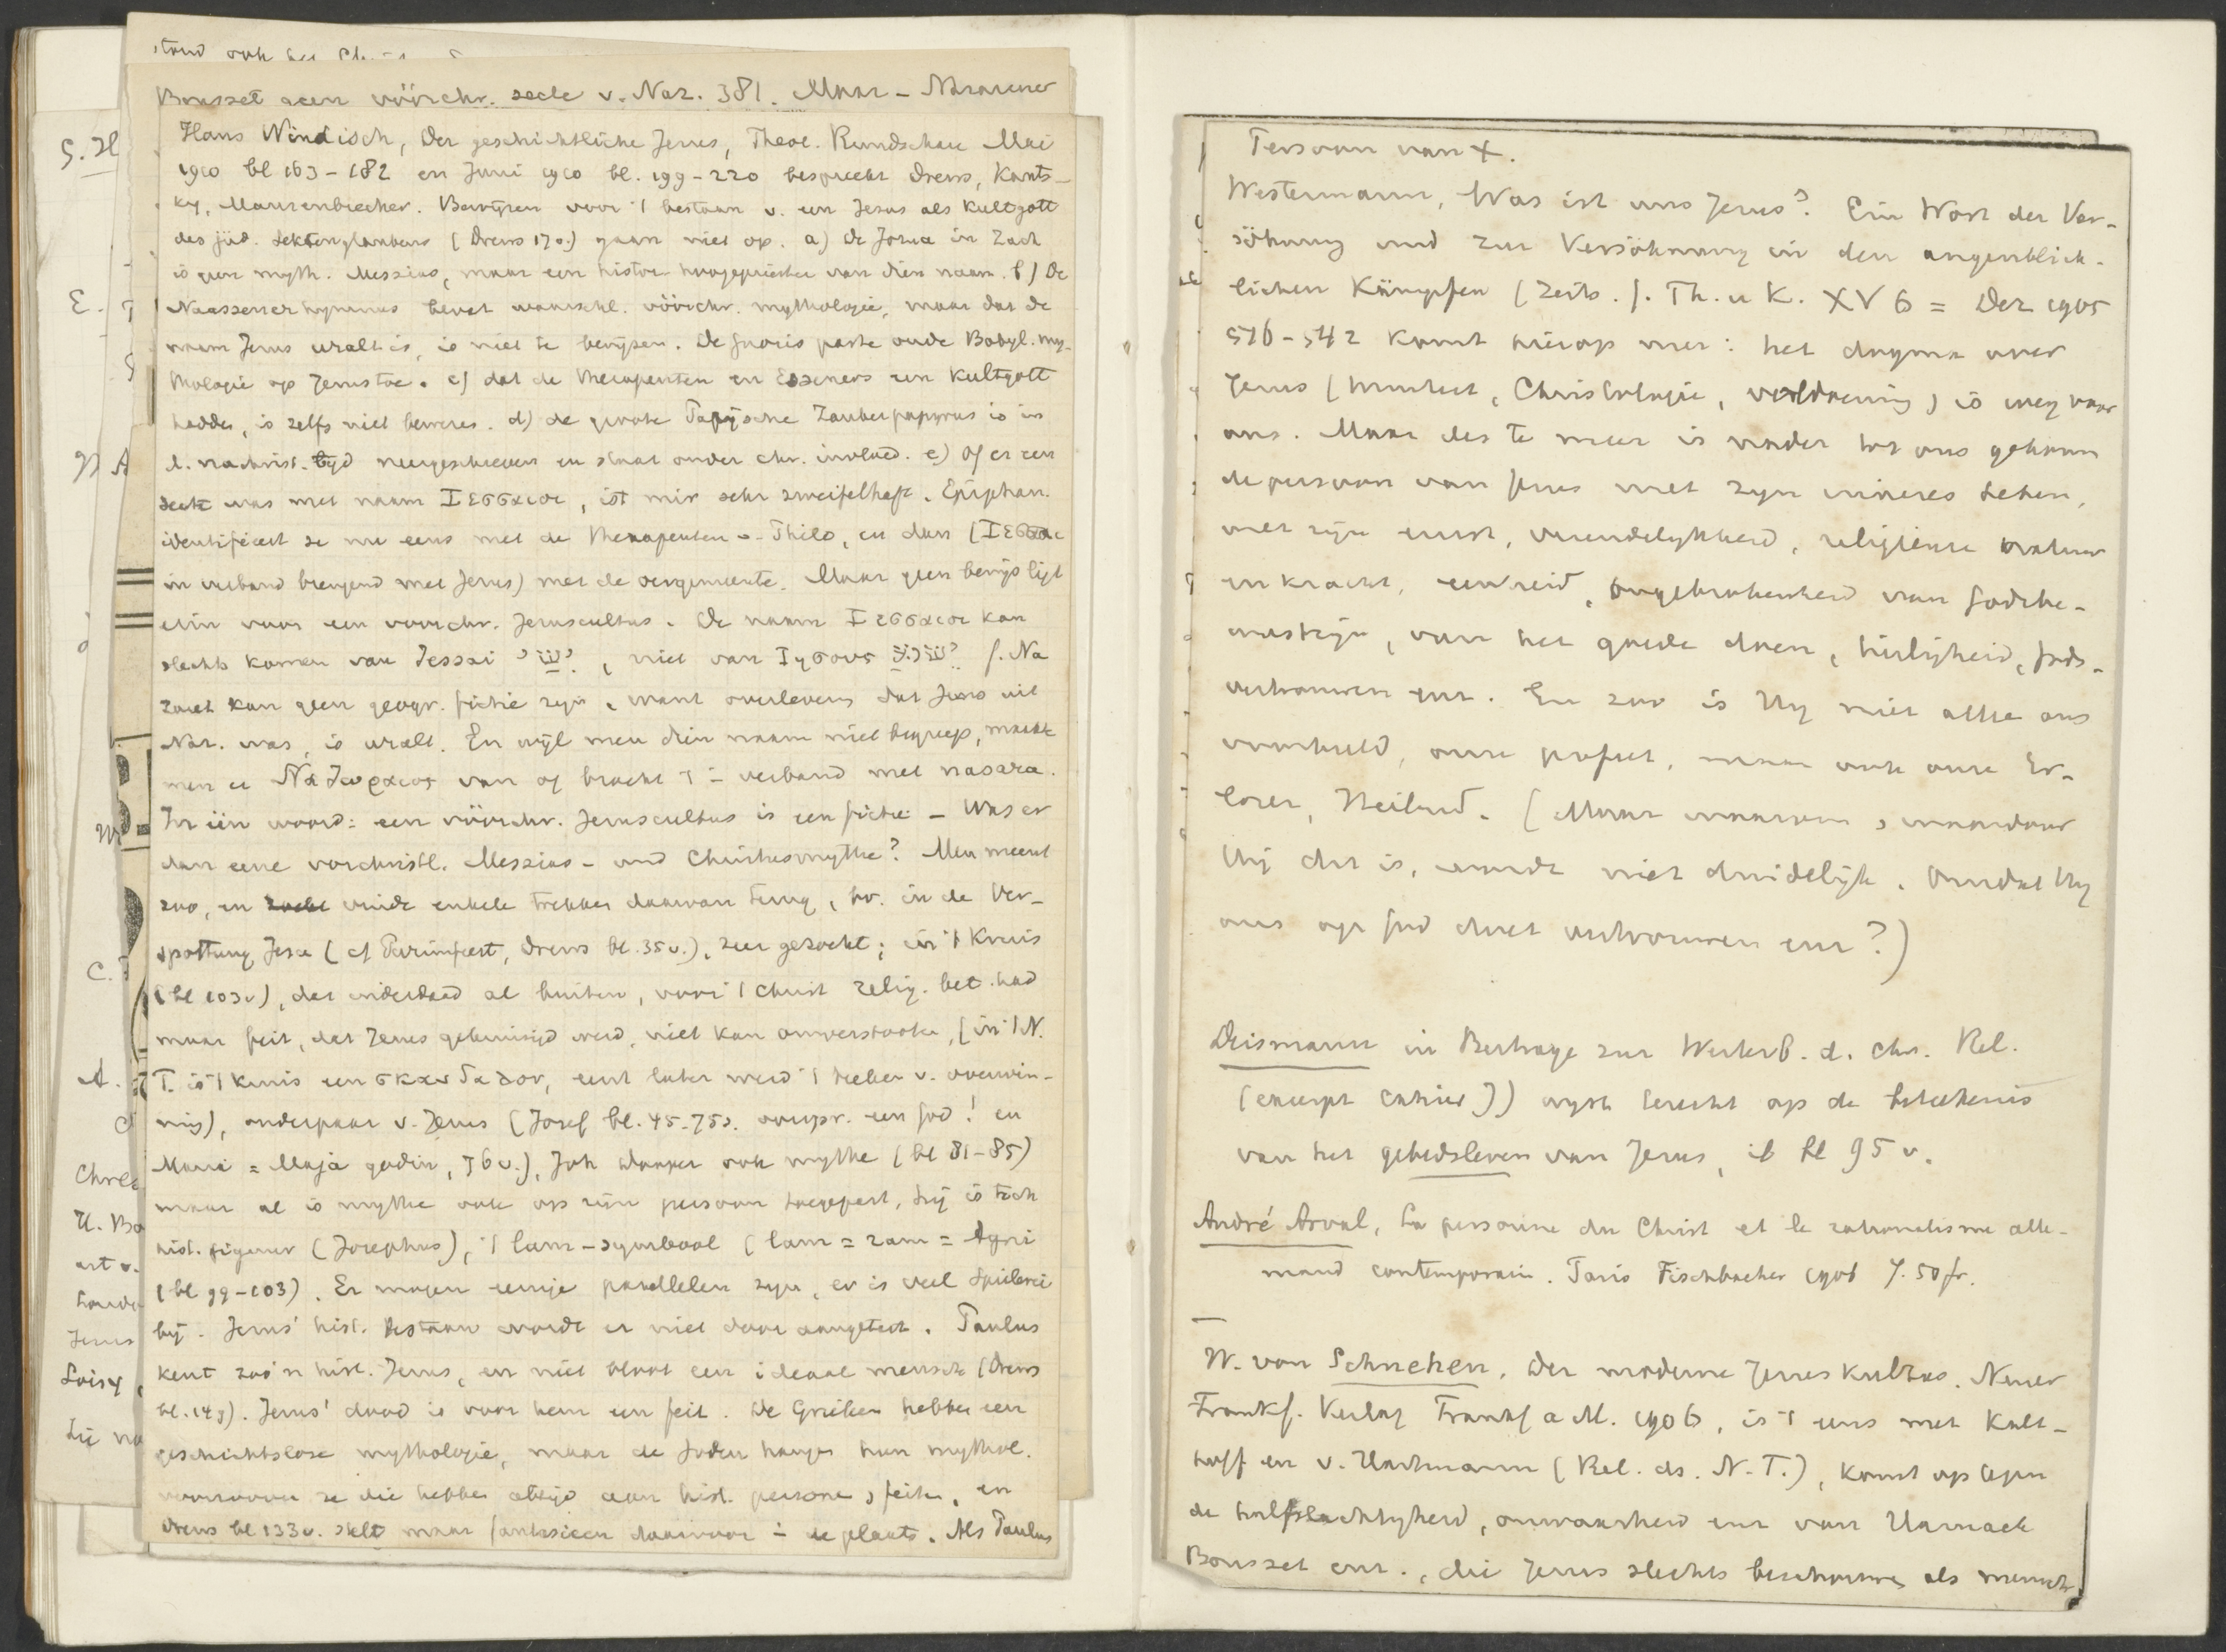 Bousset geen vóórchr. secte v. Naz. 381. Maar – Nazarener
Hans Windisch, Der geschichtliche Jesus, Theol. Rundschau Mai
1910 bl 163–182 en Juni 1910 bl. 199–220 bespreekt Drews, Kauts-
ky, Maurenbrecher. Bewijzen voor 't bestaan v. een Jesus als Kultgott
des jüd. Sektenglaubens (Drews 17v.) gaan niet op. a) de Jozua in Zach
is geen myth. Messias, maar een histor hoogepriester van dien naam. b) De
Naassenerhymnus bevat waarschl. vóórchr. mythologie, maar dat de
naam Jesus uralt is, is niet te bewijzen. De Gnosis paste oude Babyl. my-
thologie op Jesus toe. c) dat de Therapeuten en Esseners een Kultgott
hadden, is zelfs niet bewezen. d) de groote Parijsche Zauberpapyrus is in
d. nachrist. tijd neergeschreven en staat onder chr. invloed. e) Of er een
secte was met naam Ιεσσαιοι, ist mir sehr zweifelhaft. Epiphan.
identificeert ze nu eens met de Therapeuten v. Philo, en dan (Ιεσσαι
in verband brengend met Jesus) met de oergemeente. Maar geen bewijs ligt
erin voor een voorchr. Jesuscultus. De naam Ιεσσαιοι kan
slechts komen van Jessai ישי, niet van Ιησους f. Na
zaret kan geen geogr. fictie zijn, want overlevering dat Jezus uit
Naz. was, is uralt. En wijl men dien naam niet begreep, maakte
men er Ναζωραιος van of bracht 't in verband met nasara.
In één woord: een vóórchr. Jesuscultus is een fictie – Was er
dan eene vorchristl. Messias- und Christusmythe? Men meent
zoo, en vindt enkele trekken daarvan terug, bv. in de Ver-
spottung Jesu (cf Purimfeest, Drews bl. 35v.), zeer gezocht; in 't Kruis
(bl 103v), dat inderdaad al buiten, voor 't Christ relig. bet. had
maar feit, dat Jezus gekruisigd werd, niet kan omverstooten, (in 't N.
T. is 't kruis een σκανδαλον, eerst later werd 't teeken v. overwin-
ning), ouderpaar v. Jezus (Josef bl. 45.75v. oorspr. een god! en
Maria = Maja godin, 76v.), Joh Dooper ook mythe (bl 81–85)
maar al is mythe ook op zijn persoon toegepast, hij is toch
hist. figuur (Josephus), 't lam-symbool (lam = ram = Agni
(bl 99–103). Er mogen eenige parallellen zijn, er is veel Spielerei
bij. Jezus' hist. bestaan wordt er niet door aangetast. Paulus
kent zoo'n hist. Jezus, en niet bloot een ideaal mensch (Drews
bl. 149). Jezus' dood is voor hem een feit. De Grieken hebben een
geschichtslose mythologie, maar de Joden hangen hun mythol.
voorzoover ze die hebben altijd aan hist. personen, feiten, en
Drews bl 133v. stelt maar fantasieen daarvoor in de plaats. Als Paulus
Persoon van X.
Westermann, Was ist uns Jesus? Ein Wort der Ver-
söhnung und zur Versöhnung in den augenblick-
lichen Kämpfen (Zeits. f. Th. u K. XV 6 = Dez 1905
516–542 komt hierop neer: het dogma over
Jezus (Christologie, verzoening) is weg voor
ons. Maar des te meer is nader tot ons gekomen
de persoon van Jezus met zijn inneres Leben,
met zijn ernst, vriendelijkheid, religieuze natuur
en kracht, eenheid, ongebrokenheid van Godsbe-
wustzijn, van het goede doen, heiligheid, Gods-
vertrouwen enz. En zoo is Hij niet alleen ons
voorbeeld, onze profeet, maar ook onze Er-
löser, Heiland. (Maar waarom, waardoor
Hij dat is, wordt niet duidelijk. Omdat Hij
ons op God doet vertrouwen enz?)
Deismann in Beitrage zur Weiterb. d. chr. Rel.
(excerpt cahier J) wijst terecht op de beteekenis
van het gebedsleven van Jezus, ib bl 95 v.
André Arval, La personne du Christ et le rationalisme alle-
mand contemporain. Paris Fischbacher 1906 7.50 fr.
W. von Schnehen, Der moderne Jesuskultus. Neuer
Frankf. Verlag Frankf a M. 1906, is 't eens met Kalt-
hoff en v. Hartmann (Rel. ds. N.T.), komt op tegen
de halfslachtigheid, onwaarheid enz van Harnack
Bousset enz., die Jezus slechts beschouwen als mensch,